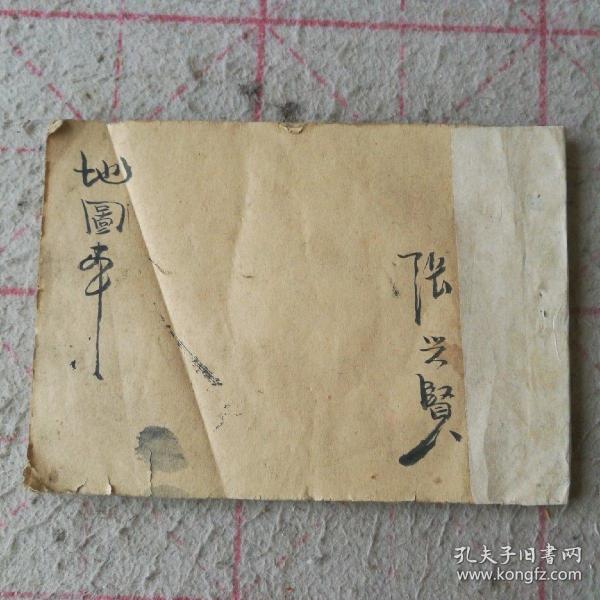 地圖本
張興賢
孔夫子旧书网
www.kongfz.com